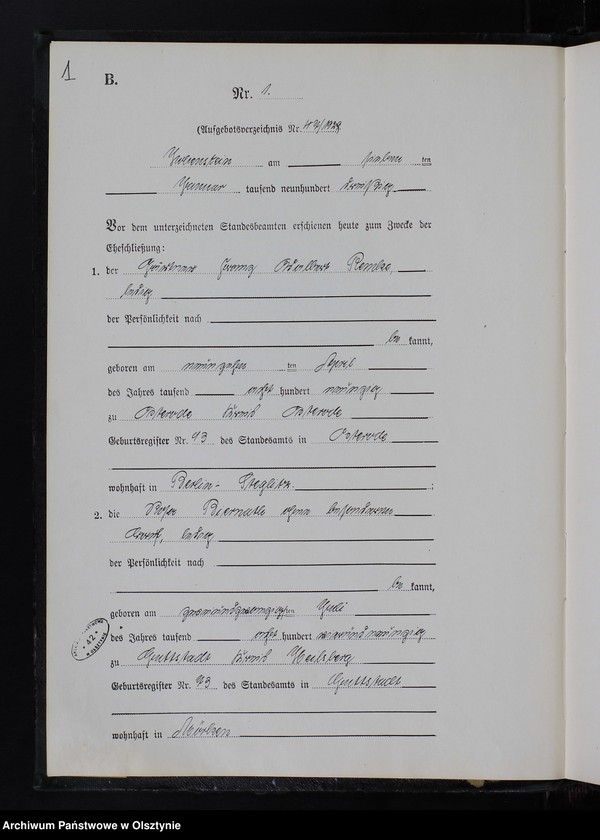 1
B.
Nr. 1.
(Aufgebotsverzeichnis Nr. 1929
Hohenstein am sieben ten
Januar tausend neunhundert dreißig
Vor dem unterzeichneten Standesbeamten erschienen heute zum Zwecke der
Eheschließung:
1. der Gärtner Franz Adalbert
ledig
der Persönlichkeit nach
be kannt,
geboren am neunzehn ten April
des Jahres tausend acht hundert neunzig
zu Osterode Kreis Osterode
Geburtsregister Nr. 93 des Standesamts in Osterode
wohnhaft in Berlin-Steglitz. ;
2. die Rosa ohne besonderen
Beruf, ledig
der Persönlichkeit nach
be kannt,
geboren am zweiundzwanzigsten Juli
des Jahres tausend acht hundert vierundneunzig
zu Guttstadt Kreis Heilsberg
Geburtsregister Nr. 73 des Standesamts in Guttstadt
wohnhaft in Mörken
42
Archiwum Państwowe w Olsztynie